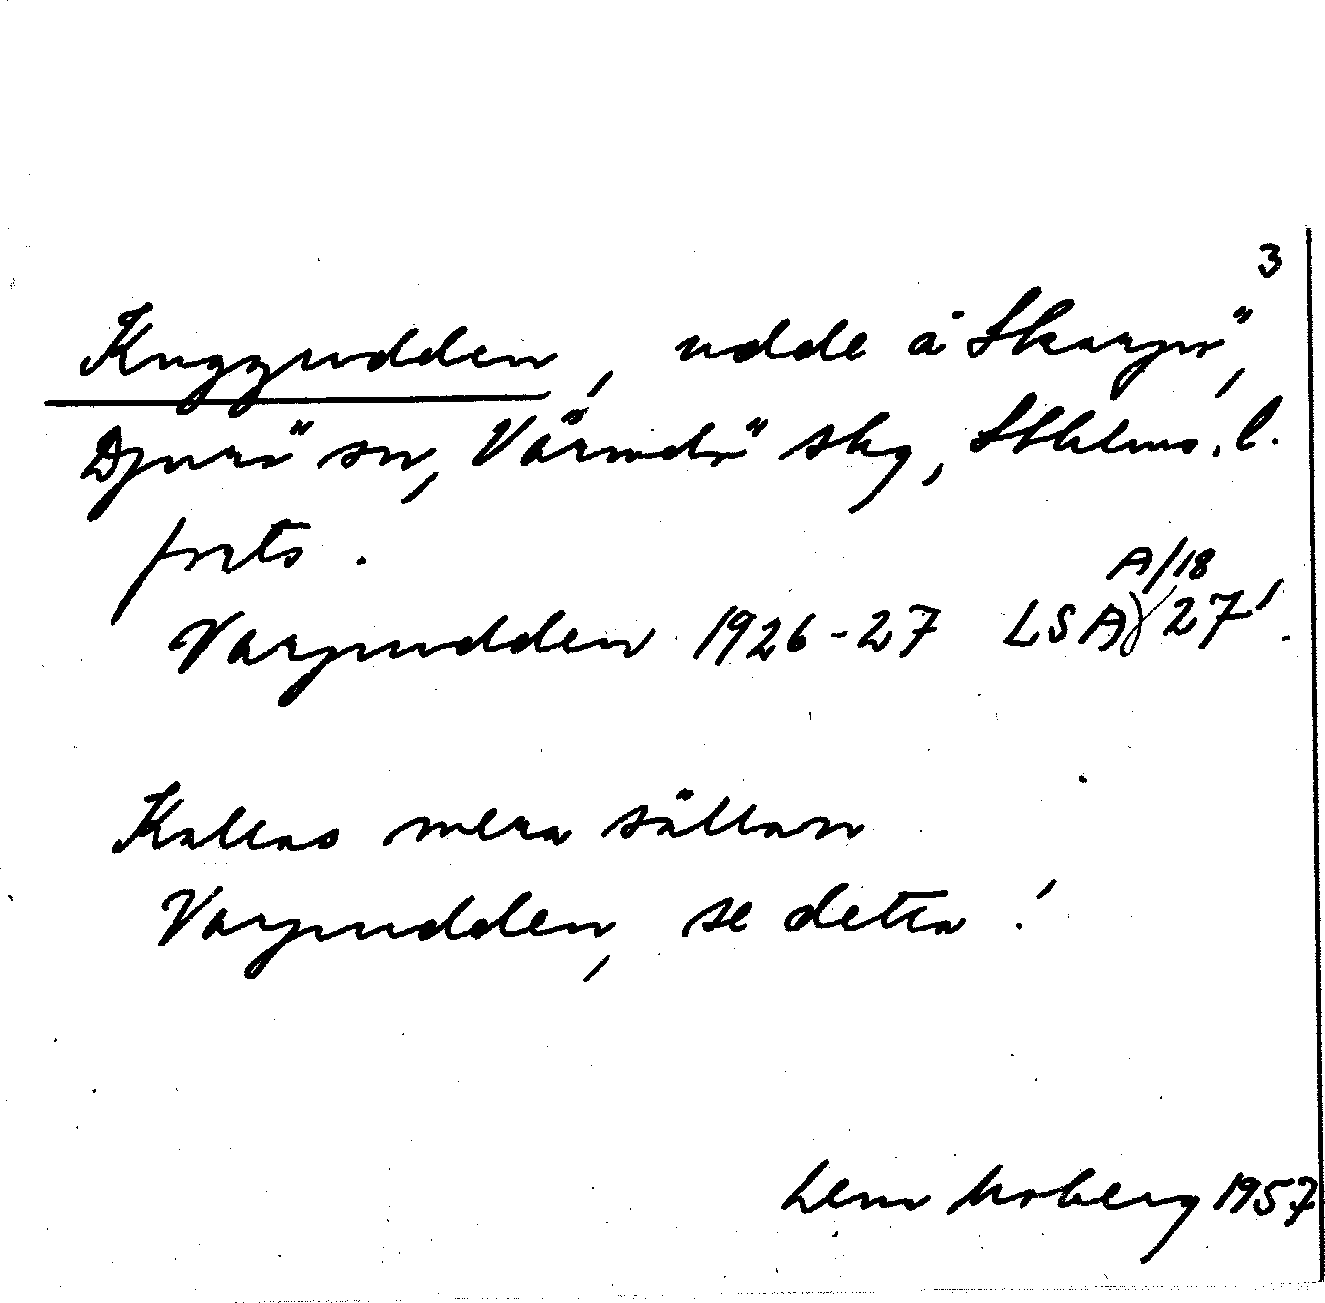 3
Kuggudden, udde å Skarpö,
Djurö sn, Värmdö skg, Sthlms. l.
forts.
Varpudden 1926-27 LSA A/18 27!.
Kallas mera sällan
Varpudden, se detta!
Lena Moberg 1957